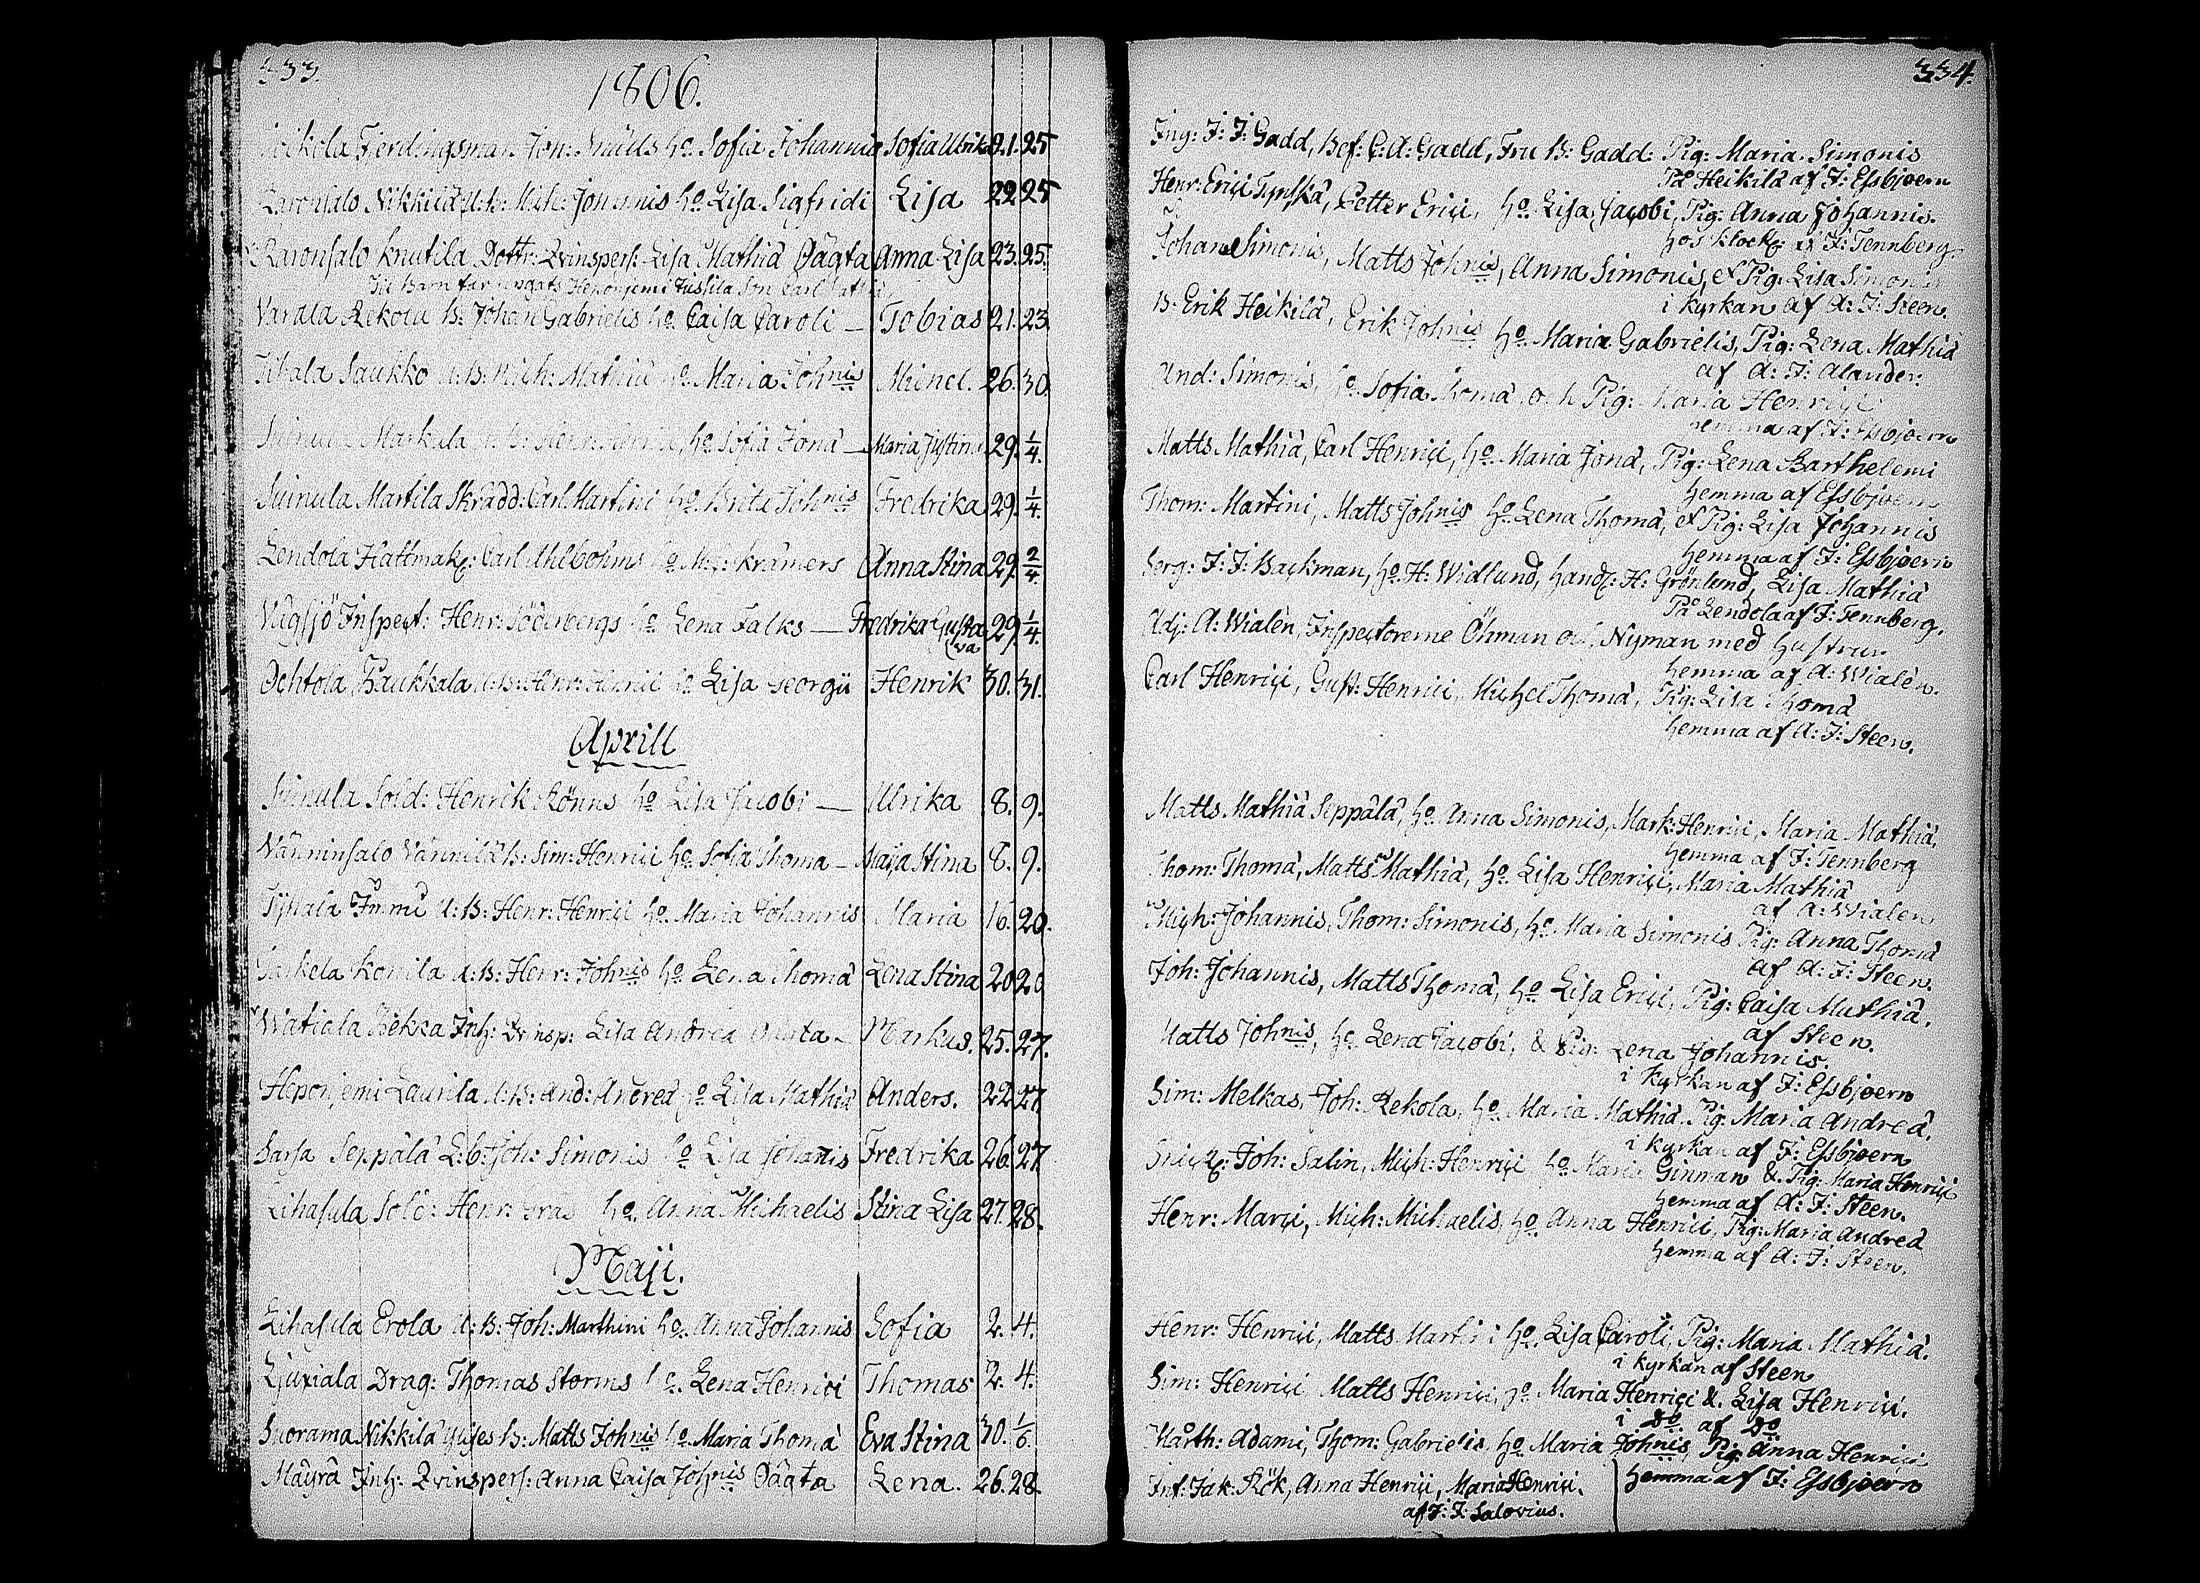 333.
1806.
Fierdingsman Jon: Snälls ho. Sofia Johannis Sofia Ulrik 21. 25
Raronsalo Nikkilä Mich: Johannis ho. Lisa Sigfridi Lisa 22 25
Raronsalo Knutila Dottr: Qvinspers: Lisa Mathiä Oägta Anna Lisa 23. 25.
Til Barn far Heponjemi Jussila Son Carl
Varala Rekola B: Johan Gabrielis ho. Caisa Caroli – Tobias 21. 23
Saukko Mich: Mathiä ho. Maria Johnis Michel. 26. 30.
Markula ho. Sofia Jonä – Maria Justina 29. 1/4.
Suinula Martila Skrädd: Carl Martini ho. Brita Johnis Fredrika 29. 1/4.
Lendola Hattmak: Carl Uhlbohms ho. Kramers Anna Stina 29. 2/4
Vägsjö Inspect: Henr: Söderbergs ho. Lena Falks – Fredrika Gusta va 29. 1/4.
Ochtola Paukkala Henr: Henrici ho. Lisa Georgii Henrik 30. 31.
Aprill
Suinula Sold: Henrik Rönns ho. Lisa Jacobi – Ulrika 8. 9.
Vänninsalo Vännilä B: Sim: Henrici ho. Sofia Thomä – Maja Stina 8. 9.
U: B: Henr: Henrici ho. Maria Johannis Maria 16. 20.
Konila U: B: Henr: Johnis ho. Lena Thomä Lena Stina 20 20
Watiala Pekka Inh: Qvinsp: Lisa Andreä Oägta – Markus. 25. 27.
Heponjemi Laurila U: B: And: Andreä ho. Lisa Mathiä Anders. 22 27.
Sarsa Seppälä L: B: Joh: Simonis ho. Lisa Johannis Fredrika 26. 27.
Lihasula Sold: Henr: Gräs ho. Anna Michaelis Stina Lisa 27. 28.
Maji.
Lihasula Erola U: B: Joh: Marthini ho. Anna Johannis Sofia 2. 4.
Liuxiala Drag: Thomas Storms ho. Lena Henrici Thomas 2. 4.
Suorama Nikkilä B: Matts Johnis ho. Maria Thomä Eva Stina 30. 1/6.
Mäyrä Inh: Qvinspers: Anna Caisa Johnis Oägta Lena. 26. 28.
334.
Ing: J: J: Gadd, Bef: C: A: Gadd, Fru B: Gadd: Pig: Maria Simonis
På Heikilä af J: Essbjoern
Henr: Erici Petter Erici, ho. Lisa Jacobi, Pig: Anna Johannis.
hos klock: af J: Tennberg.
Johan Simonis, Matts Johnis, Anna Simonis, & Pig: Lisa Simonis
i kyrkan af A: J: Steen.
B: Erik Heikilä, Erik Johnis ho. Maria Gabrielis, Pig: Lena Mathiä
af A: J: Alander:
And: Simonis, ho. Sofia Thomä och Pig: Maria Henrici
hemma af J: Essbjoern
Matts Mathiä, Carl Henrici, ho. Maria Jonä, Pig: Lena Barthelemi
hemma af Essbjoern
Thom: Martini, Matts Johnis ho. Lena Thomä, & Pig: Lisa Johannis
hemma af J: Essbjoern
Serg: J: J: Backman, ho. H: Widlund, hand: H: Grönlund, Lisa Mathiä
På Lendola af J: Tennberg.
Adj: A: Wialèn, Inspectorerne Öhman och Nyman med hustrur
hemma af A: Wialèn.
Carl Henrici, Gust: Henrici, Michel Thomä, Pig: Lisa Thomä
hemma af A: J: Steen.
Matts Mathiä Seppälä, ho. Anna Simonis, Mark: Henrici, Maria Mathiä,
hemma af J: Tennberg
Thom: Thomä, Matts Mathiä, ho. Lisa Henrici, Maria Mathiä
af A: Wialen
Mich: Johannis, Thom: Simonis, ho. Maria Simonis Pig: Anna Thomä
af A: J: Steen.
Joh: Johannis, Matts Thomä, ho. Lisa Erici, Pig: Caisa Mathiä.
af Steen.
Matts Johnis, ho. Lena Jacobi, & Pig: Lena Johannis.
i kyrkan af J: Essbjoern
Sim: Melkas, Joh: Rekola, ho. Maria Mathiä. Pig: Maria Andreä.
i kyrkan af J: Essbjoern
Joh: Salin, Mich: Henrici ho. Maria Ginman & Pig: Maria Henrici
hemma af A: J: Steen.
Henr: Marci, Mich: Michaelis ho. Anna Henrici, Pig: Maria Andreä
hemma af A: J: Steen.
Henr: Henrici, Matts Martini ho. Lisa Caroli, Pig: Maria Mathiä.
i kyrkan af Steen
Sim: Henrici Matts Henrici, ho. Maria Henrici & Lisa Henrici.
i Do af Do
Marth: Adami, Thom: Gabrielis, ho. Maria Johnis, Pig: Anna Henrici
hemma af J: Essbjoern
Inf: Jak: Rök, Anna Henrici, Maria Henrici.
af J: J: Salovius.